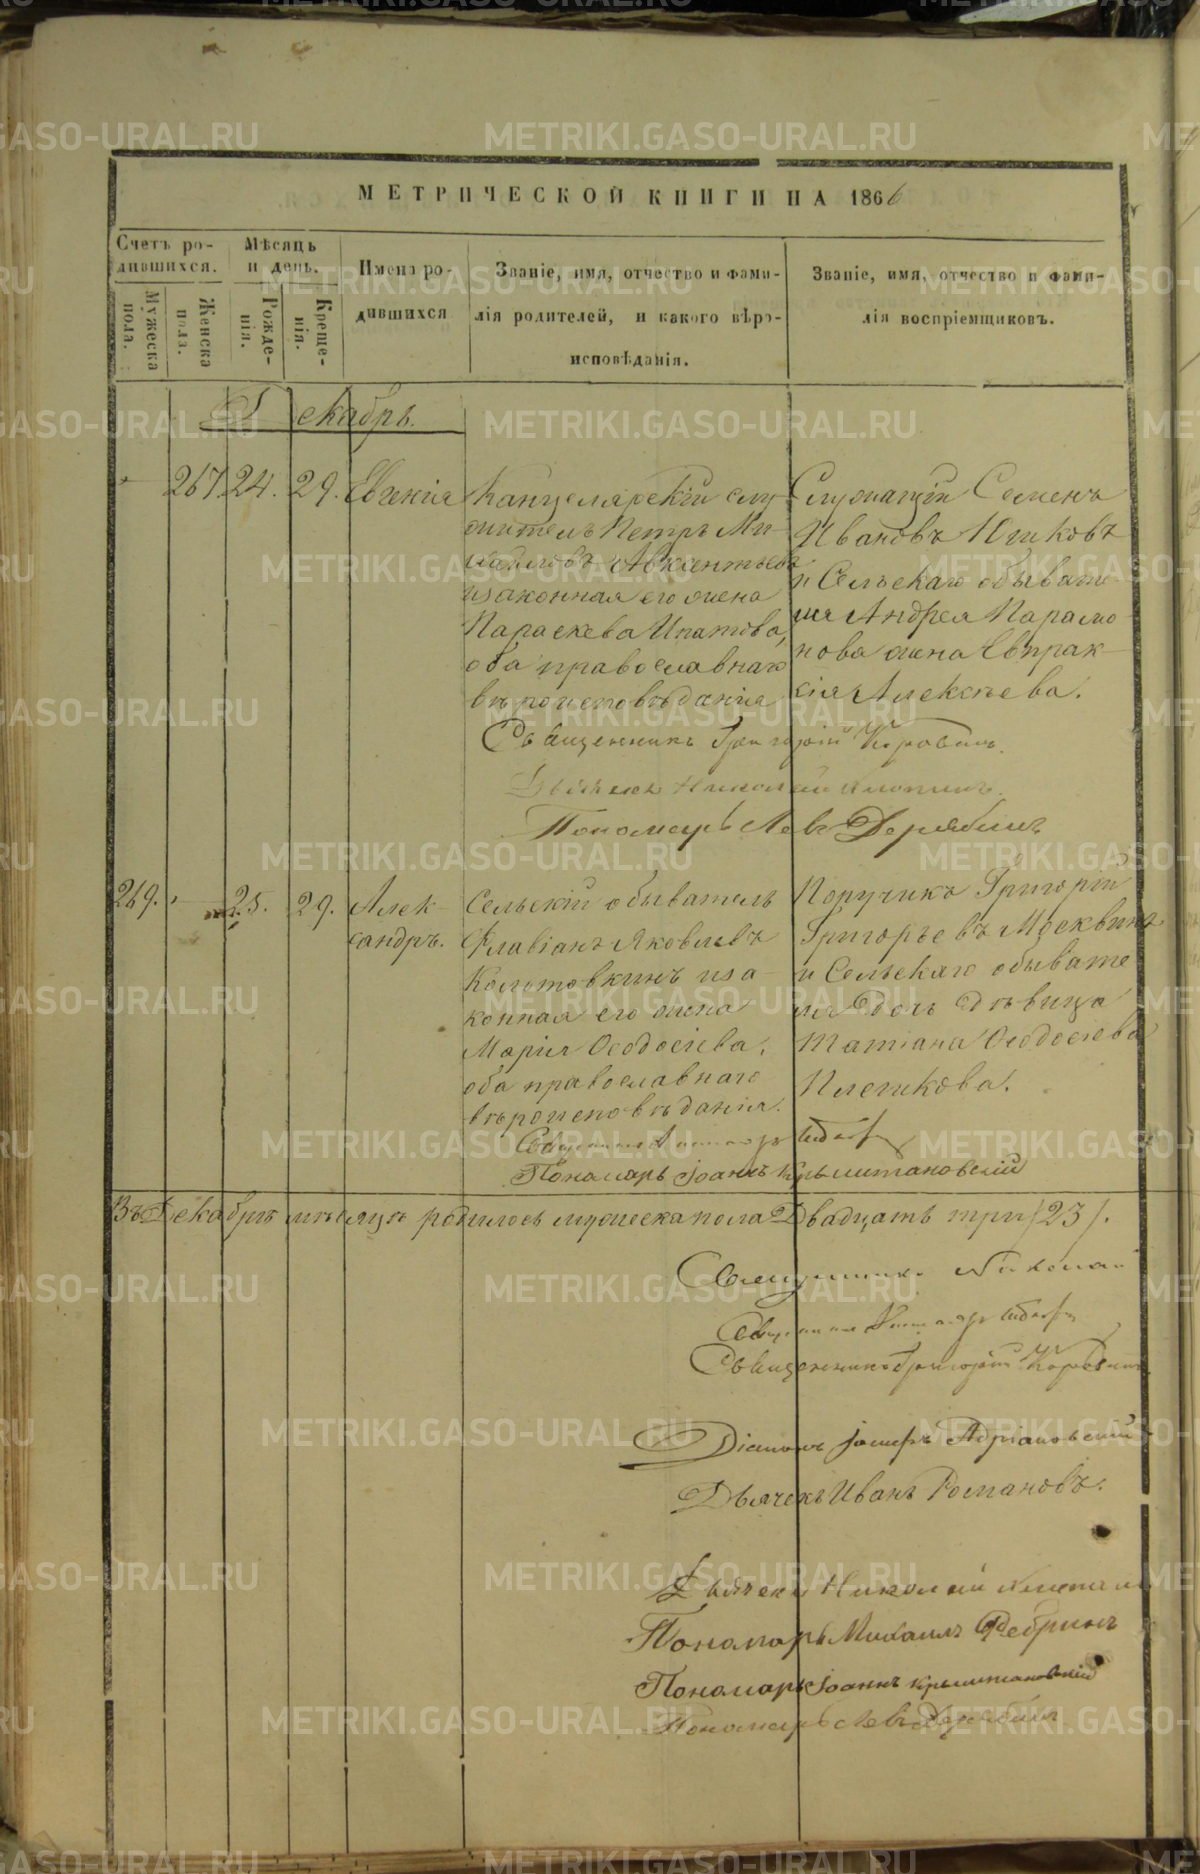 МЕТРИЧЕСКОЙ КНИГИ НА 1866
Счетъ ро-
дившихся.
Мужеска
пола.
Женска
пола.
Мѣсяцъ
и день.
Рожде-
нія.
Креще-
нія.
Имена ро-
дившихся
Званіе, имя, отчество и фами-
лія родителей, и какого вѣро-
исповѣданія.
Званіе, имя, отчество и фами-
лія воспріемщиковъ.
Декабрь.
267. 24. 29. Евгенія
Канцелярскій слу-
житель Петръ Ми-
Авксентьевъ
и законная его жена
Параскева Ипатова,
оба православнаго
вѣроисповѣданія
Служащій Семенъ
Ивановъ
и Сельскаго обывате
ля Андрея Парамо-
нова жена Евпрак-
сія Алексѣева.
Священникъ Григорій Коровинъ.
Дьячекъ Николай
Пономарь Левъ Дерябинъ
269. 25. 29. Алек-
сандръ.
Сельскій обыватель
Флавіанъ Яковлевъ
Колотовкинъ и за-
конная его жена
Марія Ѳеодосіева,
оба православнаго
вѣроисповѣданія.
Поручикъ Григорій
Григорьевъ Москвинъ
и Сельскаго обывате
ля дочь дѣвица
Татіана Ѳеодосіева
Плешкова.
Священникъ
Пономарь Іоаннъ Крыжтановскій
Въ Декабрѣ мѣсяцѣ родилось мужеска пола Двадцать три /23/.
Священникъ Николай
Священникъ
Священникъ Григорій Коровинъ
Діаконъ Іосифъ Адріановскій
Дьячекъ Иванъ Романовъ.
Дьячекъ Николай
Пономарь Михаилъ Ребринъ
Пономарь Іоаннъ Крыжтановскій
Пономарь Левъ Дерябинъ
METRIKI.GASO-URAL.RU